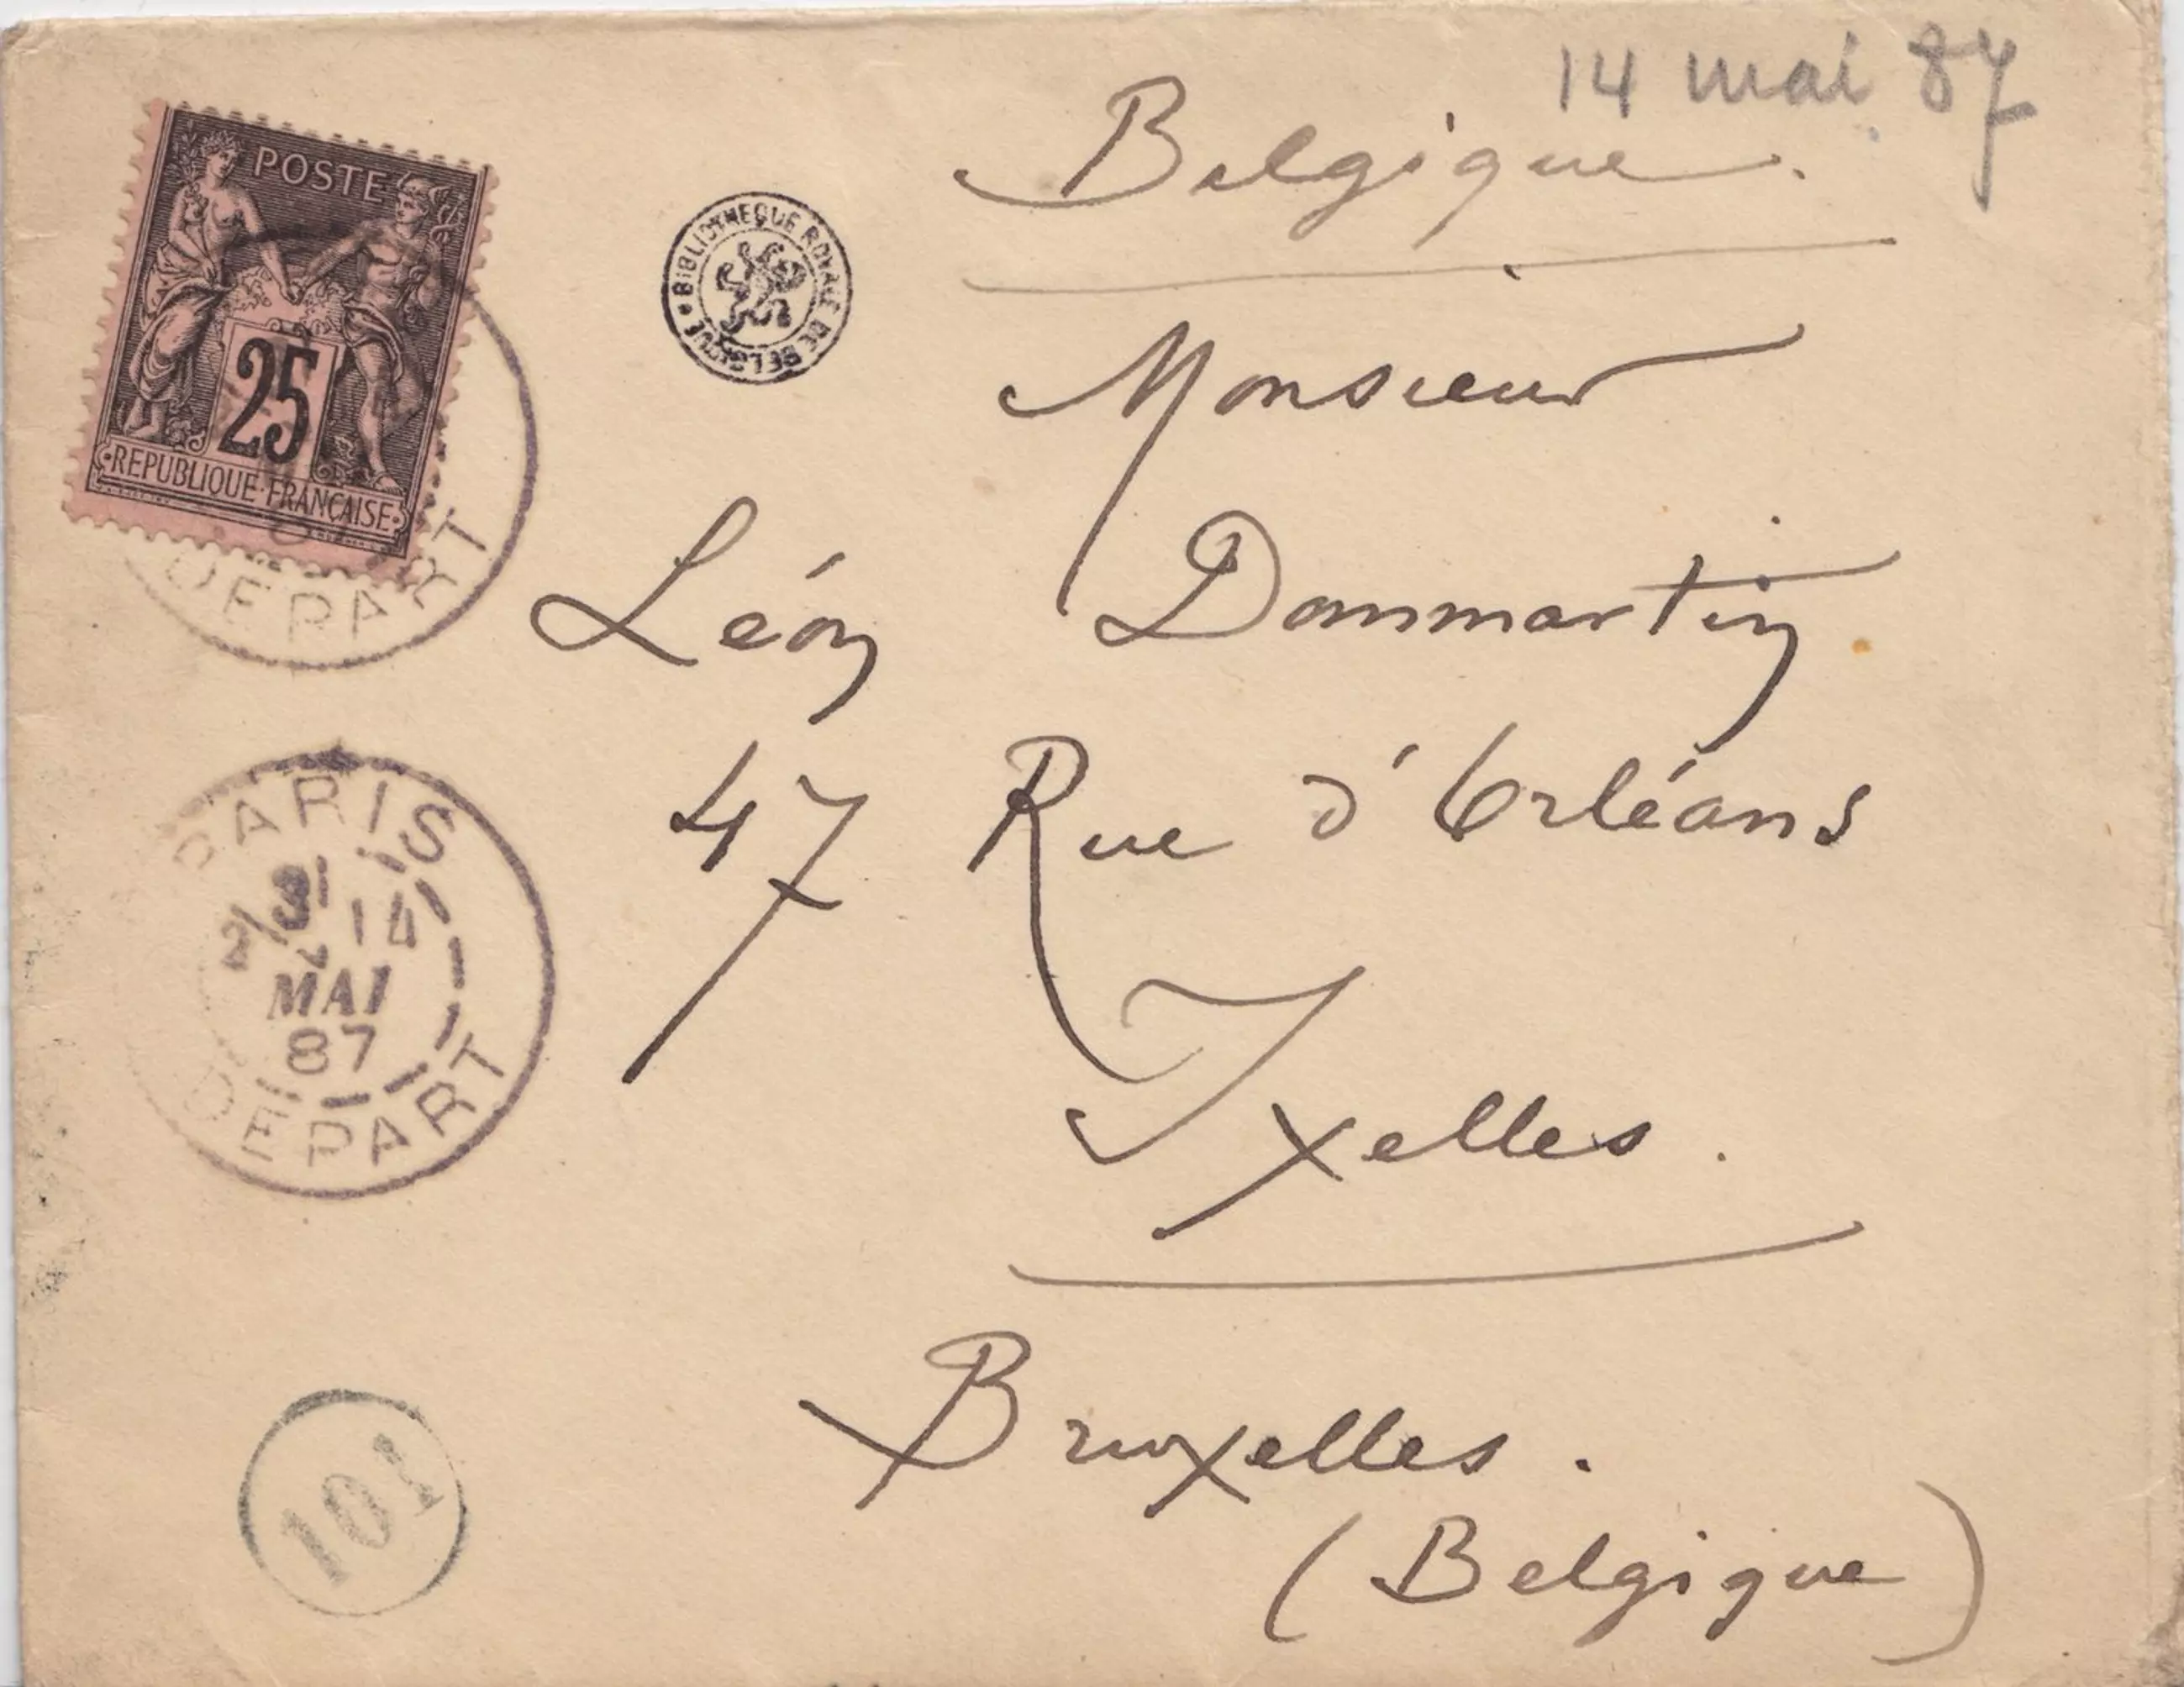 14 mai 87
Belgique.
POSTE
25
REPUBLIQUE FRANÇAISE
DEPART
BIBLIOTHEQUE ROYALE DE BELGIQUE
Monsieur
Léon Dommartin
47 Rue d'Orléans
Ixelles.
Bruxelles.
(Belgique)
PARIS
14
MAI
87
DEPART
101